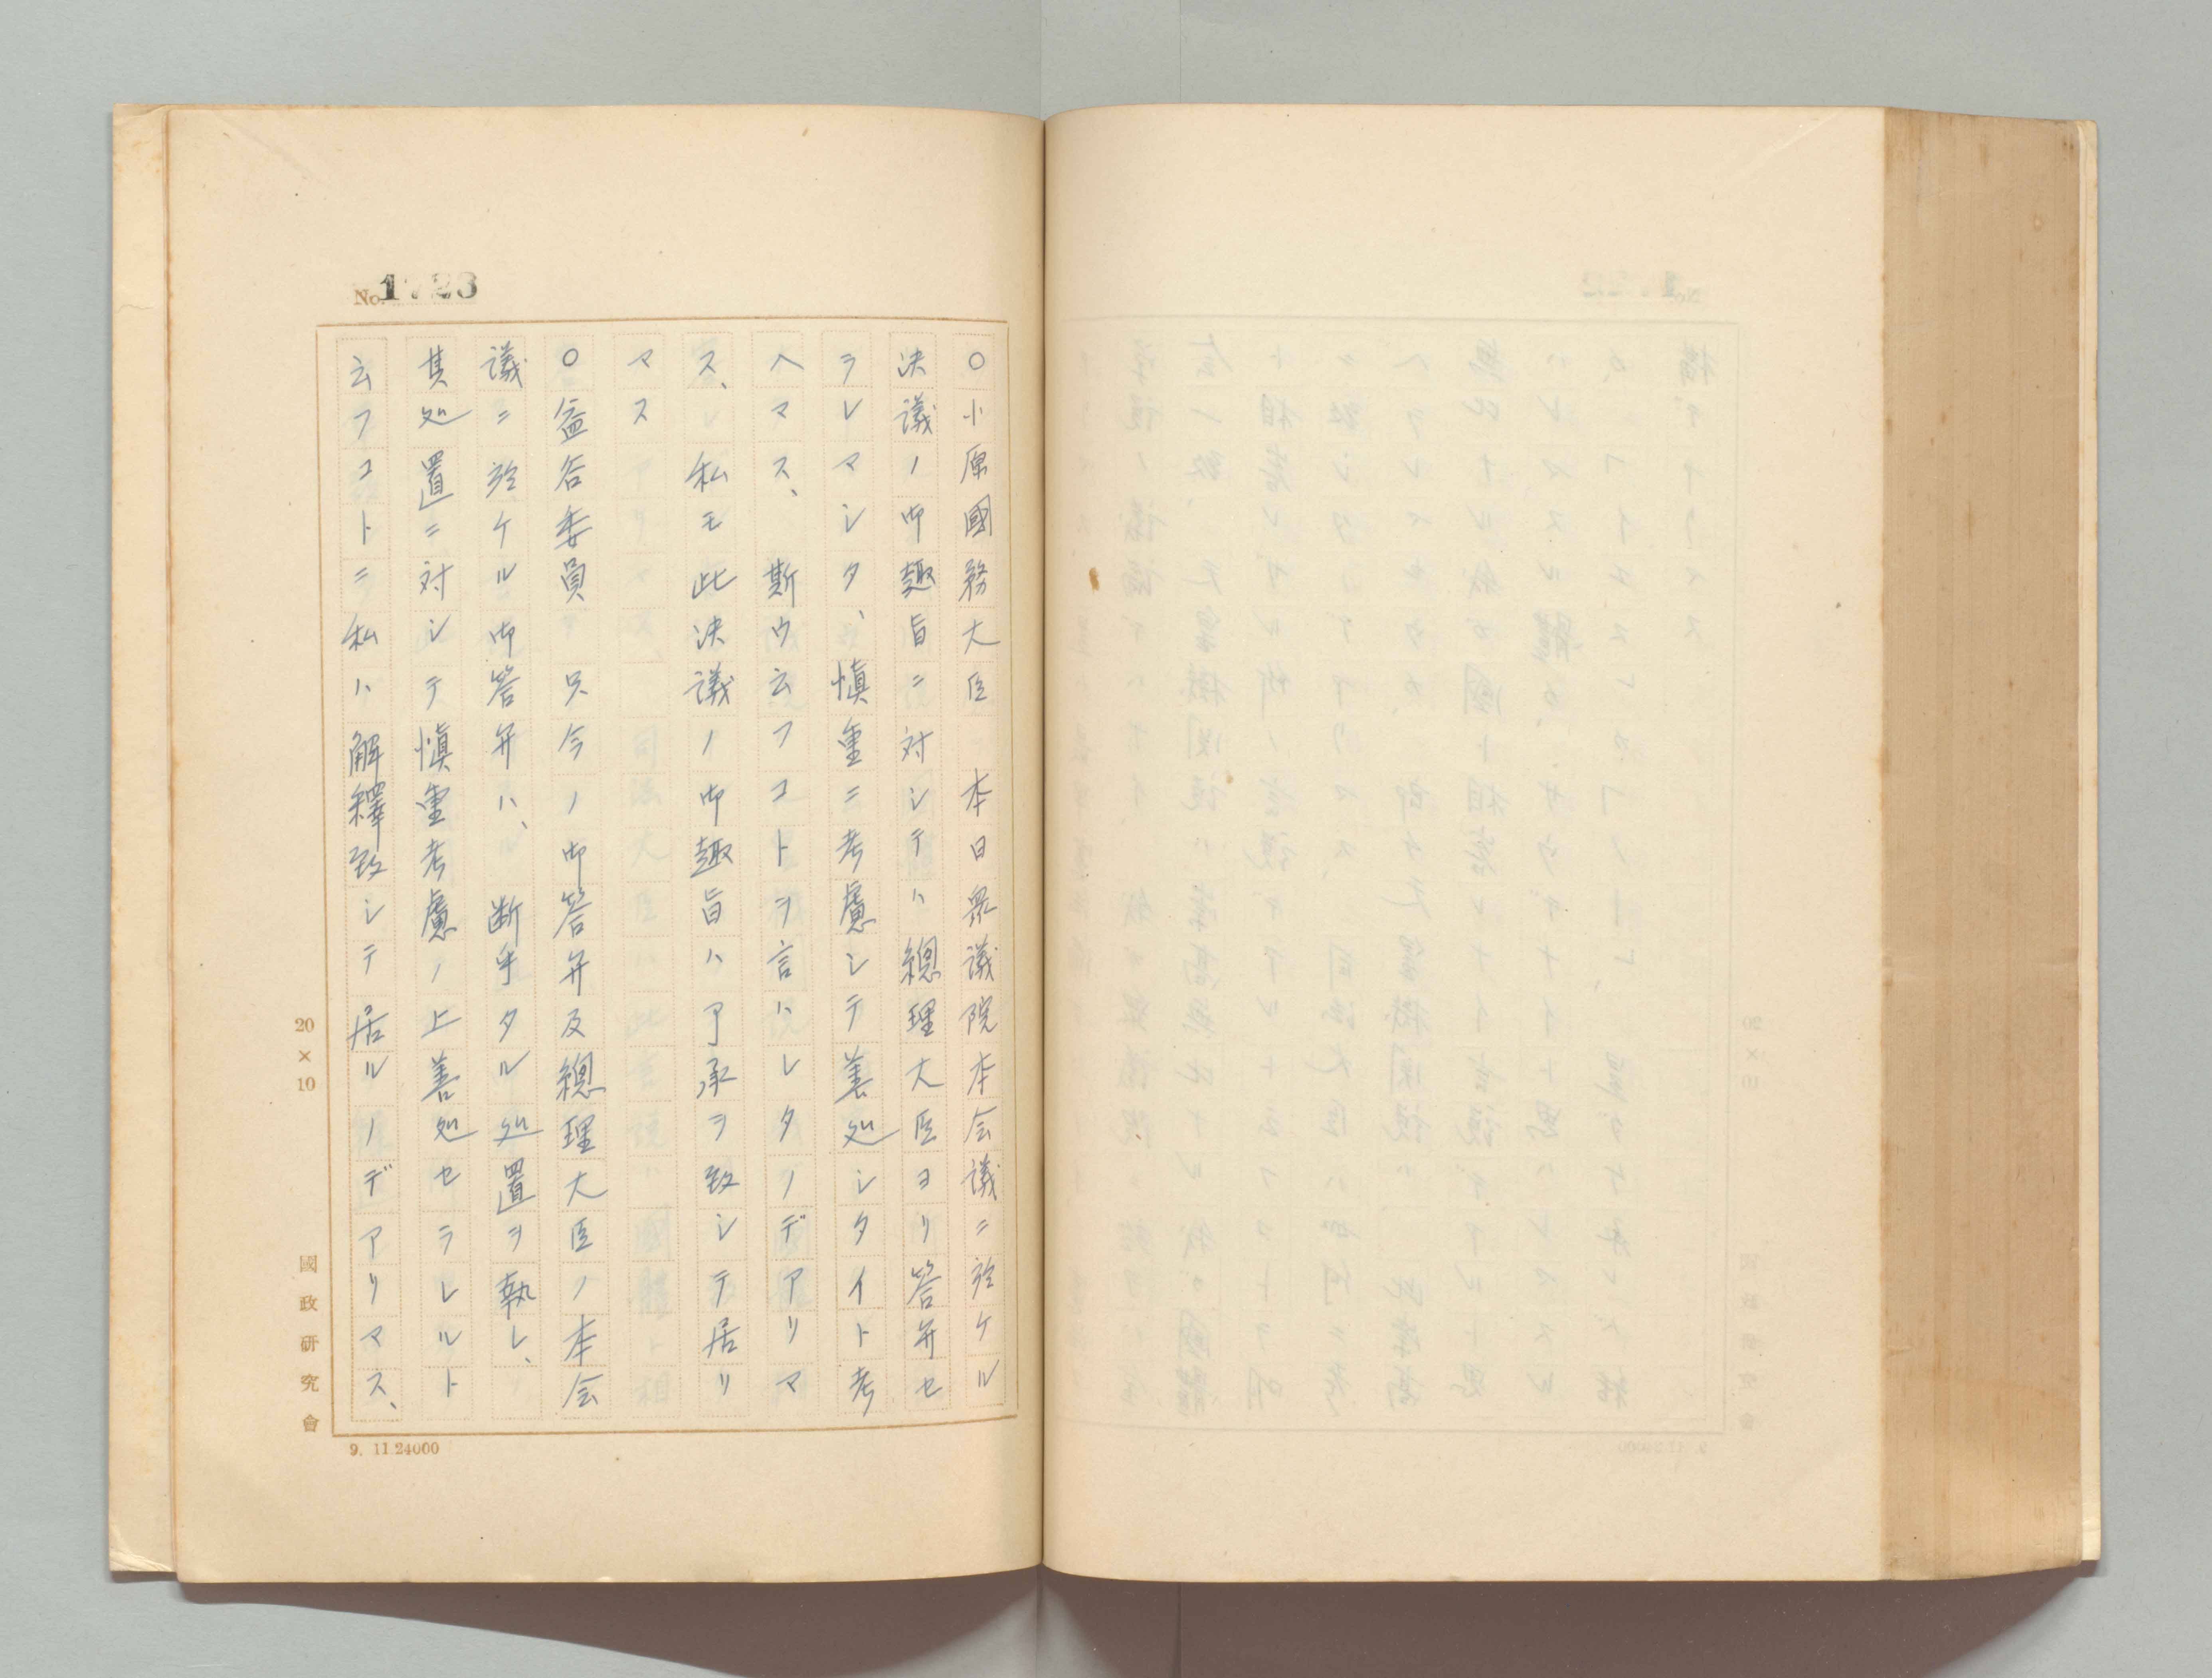 No. 1723
○小原國務大臣　本日衆議院本会議ニ於ケル
決議ノ御趣旨ニ対シテハ總理大臣ヨリ答弁セ
ラレマシタ、慎重ニ考慮シテ善処シタイト考
ヘマス、斯ウ云フコトヲ言ハレタノデアリマ
ス、私モ此決議ノ御趣旨ハ了承ヲ致シテ居リ
マス
○益谷委員　只今ノ御答弁及總理大臣ノ本会
議ニ於ケル御答弁ハ、断乎タル処置ヲ執レ、
其処置ニ対シテ慎重考慮ノ上善処セラレルト
云フコトニ私ハ解釋致シテ居ルノデアリマス、
20×10
國政研究會
9. 11.24000